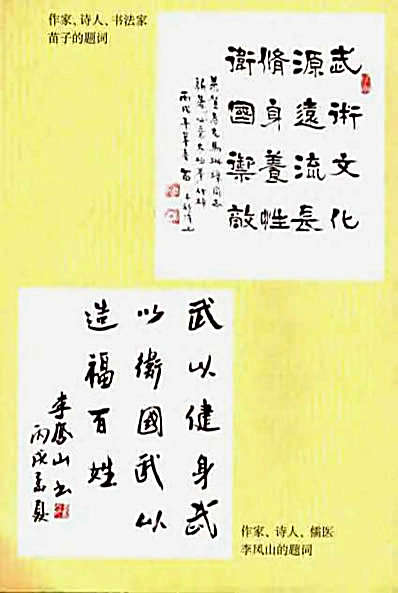 作家、诗人、书法家
苗子的题词
武術文化
源遠流長
脩身養性
衛國禦敵
丙戌年
武以健身武
以衛國武以
造福百姓
李風山书
丙戌孟夏
作家、诗人、儒医
李风山的题词